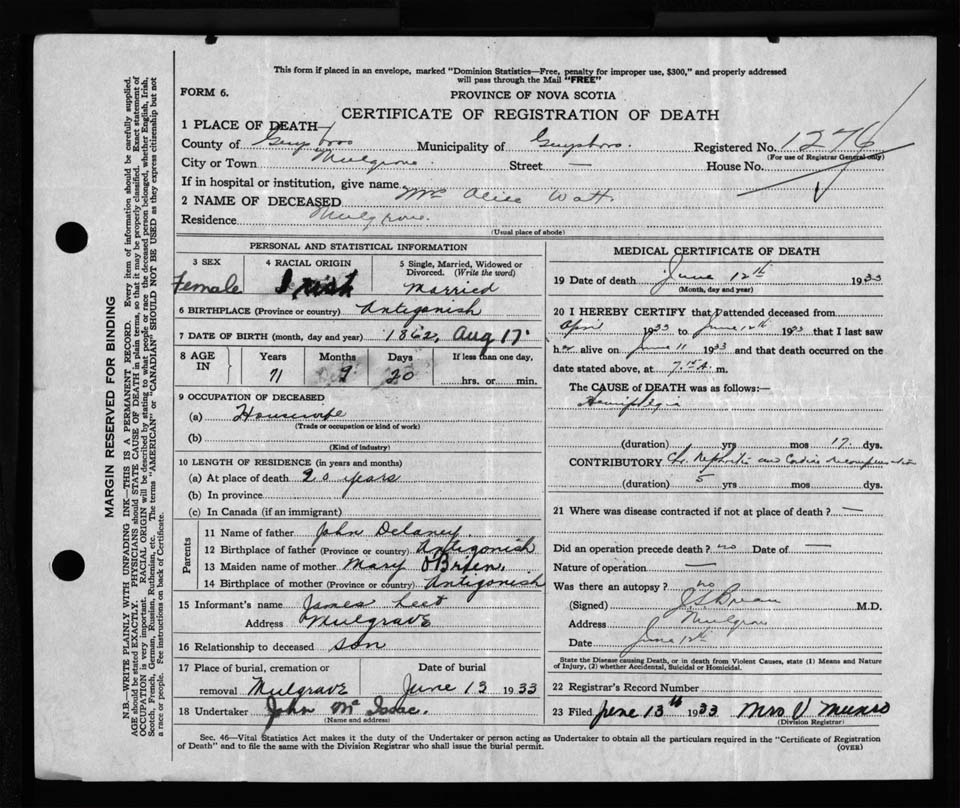 This form if placed in an envelope, marked "Dominion Statistics—Free, penalty for improper use, $300," and properly addressed
will pass through the Mail "FREE"
FORM 6.
PROVINCE OF NOVA SCOTIA
CERTIFICATE OF REGISTRATION OF DEATH
1 PLACE OF DEATH—
County of Guysboro Municipality of Guysboro. Registered No. 1276
(For use of Registrar General only)
City or Town Mulgrave. Street — House No.
If in hospital or institution, give name
2 NAME OF DECEASED Mrs Alice Watt.
Residence Mulgrave.
(Usual place of abode)
PERSONAL AND STATISTICAL INFORMATION
3 SEX
Female
4 RACIAL ORIGIN
Irish
5 Single, Married, Widowed or
Divorced. (Write the word)
Married
6 BIRTHPLACE (Province or country) Antigonish
7 DATE OF BIRTH (month, day and year) 1862, Aug 17
8 AGE IN
Years Months Days If less than one day,
71 9 20 hrs. or min.
9 OCCUPATION OF DECEASED
(a) Housewife
(Trade or occupation or kind of work)
(b)
(Kind of industry)
10 LENGTH OF RESIDENCE (in years and months)
(a) At place of death 20 years
(b) In province
(c) In Canada (if an immigrant)
Parents
11 Name of father John Delaney.
12 Birthplace of father (Province or country) Antigonish
13 Maiden name of mother Mary O'Brien.
14 Birthplace of mother (Province or country) Antigonish
15 Informant's name James
Address Mulgrave
16 Relationship to deceased son
17 Place of burial, cremation or Date of burial
removal Mulgrave June 13 1933
18 Undertaker John Mc Isaac.
(Name and address)
MEDICAL CERTIFICATE OF DEATH
19 Date of death June 12th 1933
(Month, day and year)
20 I HEREBY CERTIFY that I attended deceased from
April 1933 to June 12th 1933 that I last saw
her alive on June 11 1933 and that death occurred on the
date stated above, at 7 A. m.
The CAUSE of DEATH was as follows:—
Hemiplegia
(duration) yrs mos 17 dys.
CONTRIBUTORY Ch. Nephritis and Cardiac decompensation
(duration) 5 yrs mos dys.
21 Where was disease contracted if not at place of death? —
Did an operation precede death? no Date of —
Nature of operation —
Was there an autopsy? no
(Signed) M.D.
Address Mulgrave
Date June 12th
State the Disease causing Death, or in death from Violent Causes, state (1) Means and Nature
of Injury, (2) whether Accidental, Suicidal or Homicidal.
22 Registrar's Record Number
23 Filed June 13th 1933 Mrs V Munro
(Division Registrar)
Sec. 46—Vital Statistics Act makes it the duty of the Undertaker or person acting as Undertaker to obtain all the particulars required in the "Certificate of Registration
of Death" and to file the same with the Division Registrar who shall issue the burial permit.
(OVER)
MARGIN RESERVED FOR BINDING
N.B.—WRITE PLAINLY WITH UNFADING INK—THIS IS A PERMANENT RECORD. Every item of information should be carefully supplied.
AGE should be stated EXACTLY. PHYSICIANS should STATE CAUSE OF DEATH in plain terms, so that it may be properly classified. Exact statement of
OCCUPATION is very important. RACIAL ORIGIN will be described by stating to what people or race the deceased person belonged, whether English, Irish,
Scotch, French, German, Russian, Ruthenian, etc. The terms "AMERICAN" or "CANADIAN" SHOULD NOT BE USED as they express citizenship but not
a race or people. Fee instructions on back of Certificate.